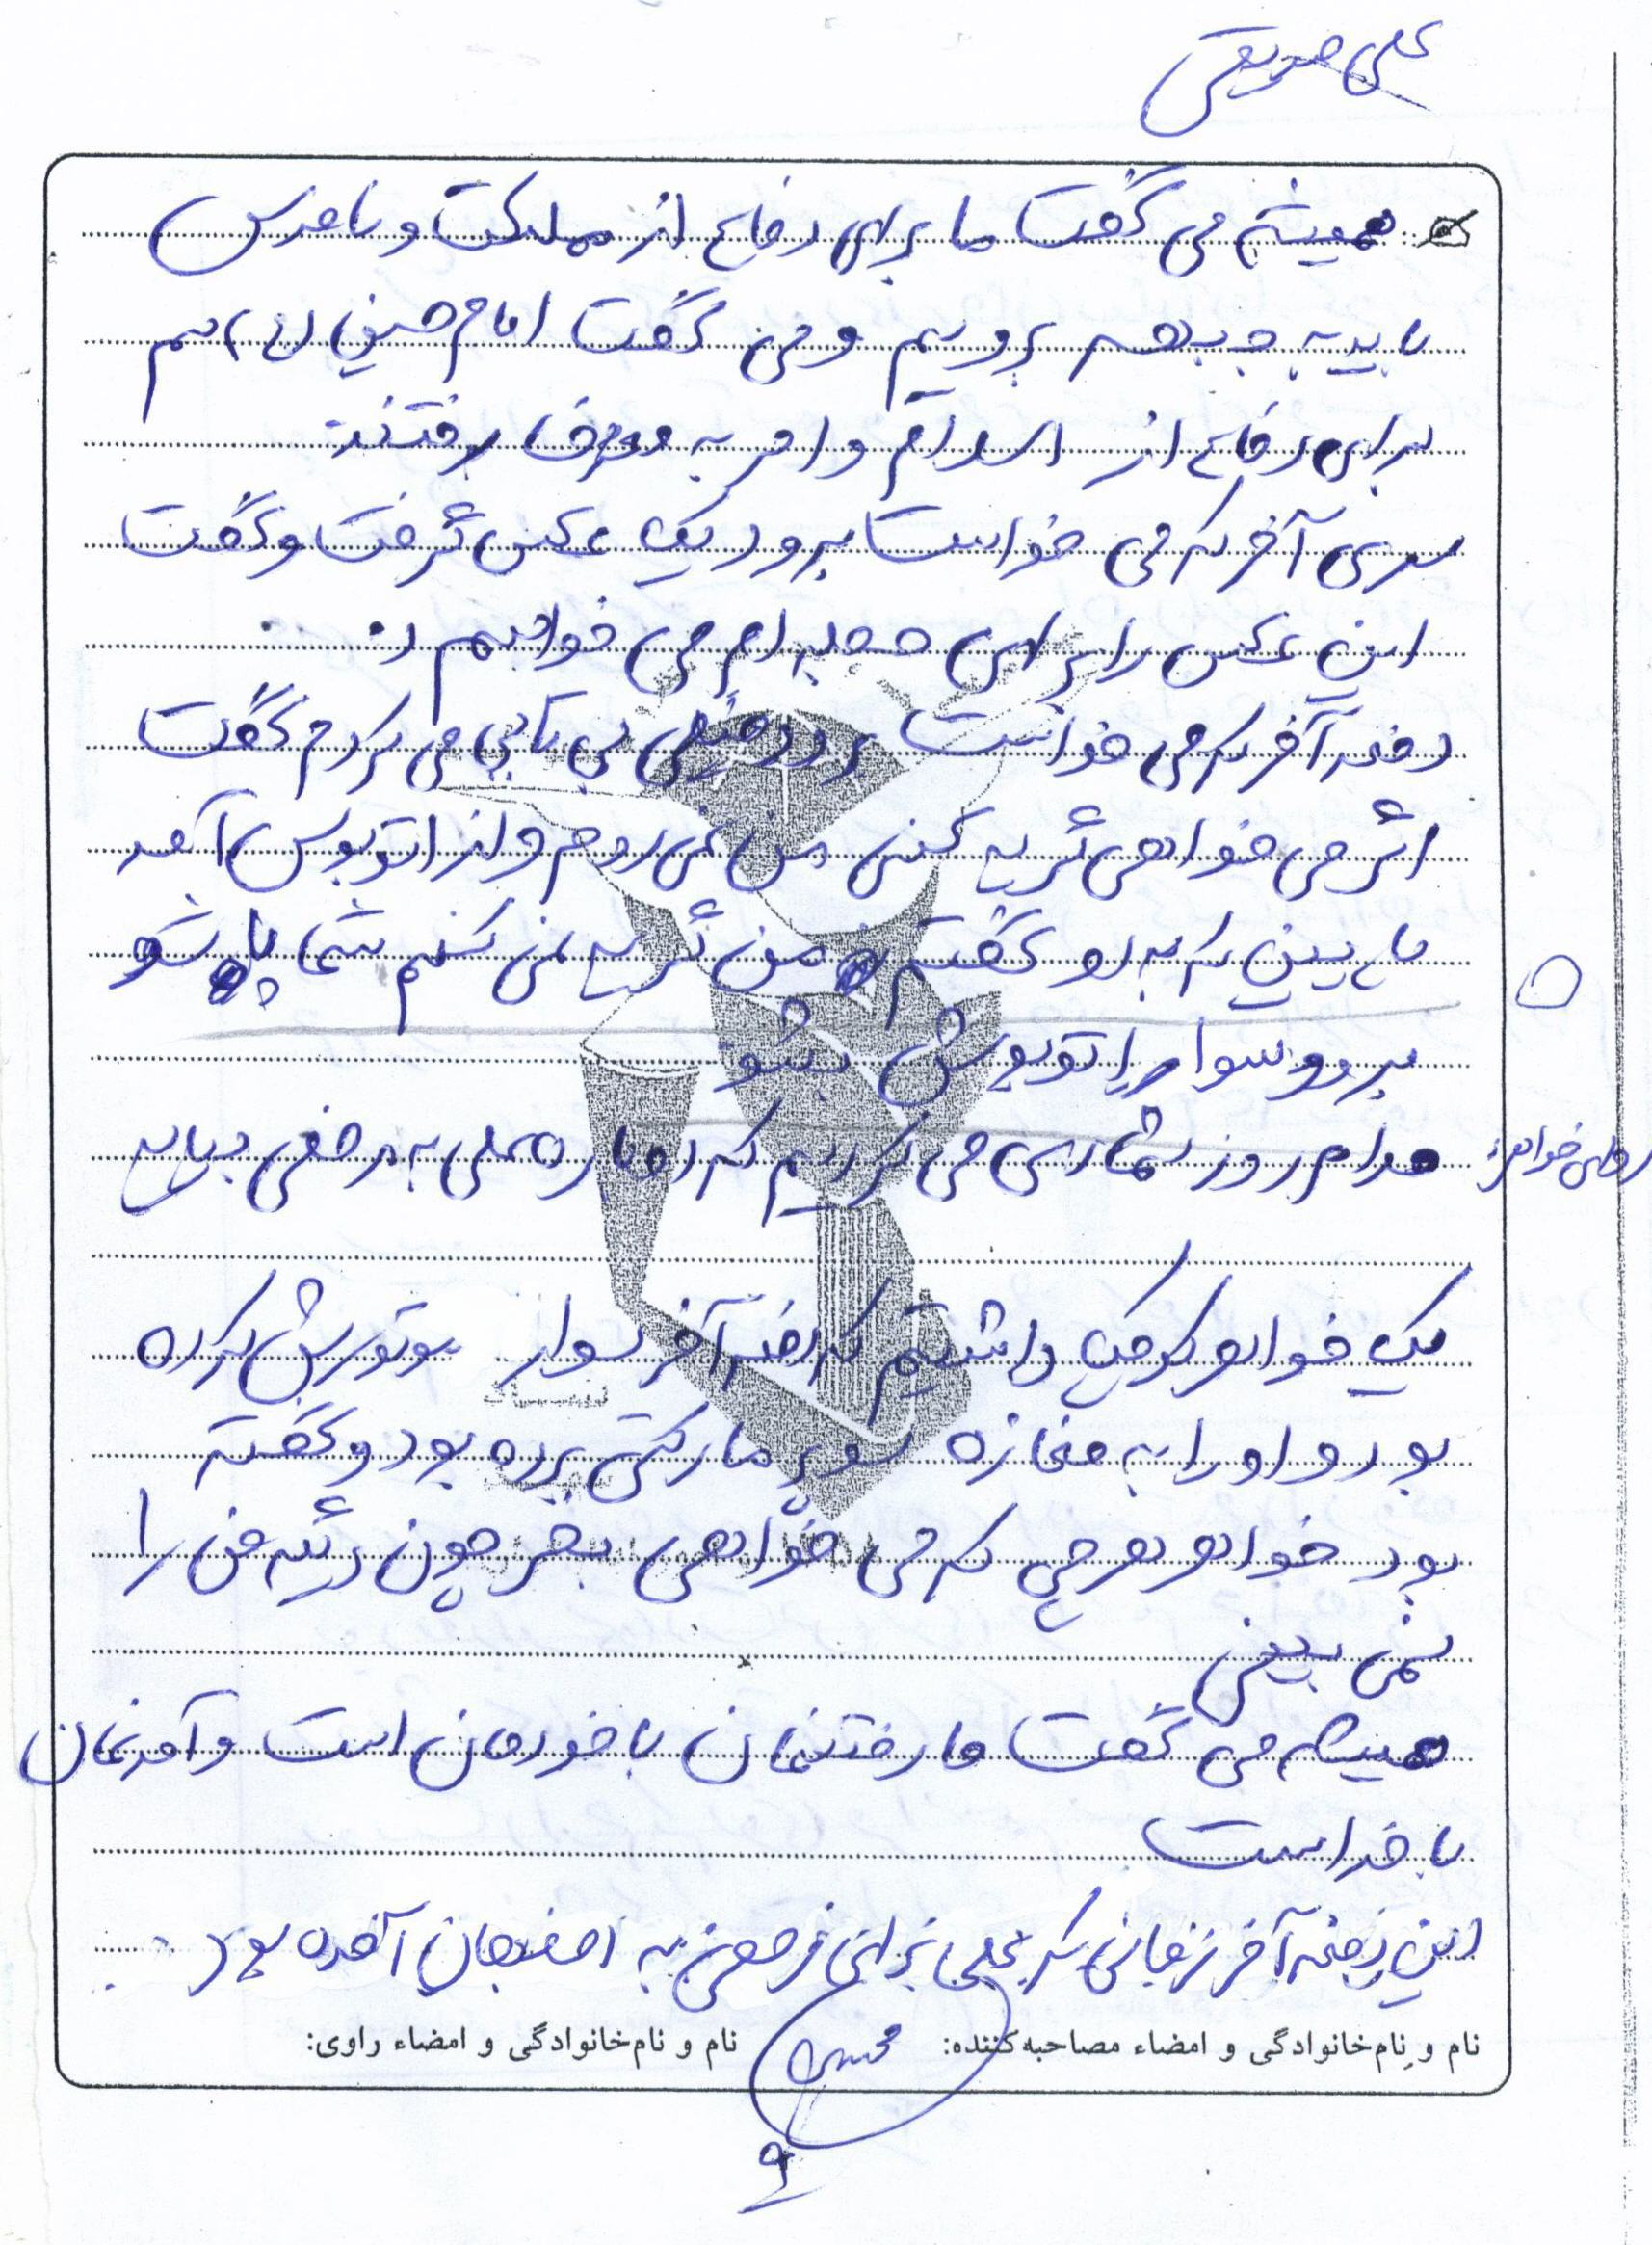 علی صدیقی
همیشه می گفت ما برای دفاع از مملکت و ناموس
باید به جبهه برویم و می گفت امام حسین (ع) هم
برای دفاع از اسلام و امر به معروف رفتند
سری آخر که می خواست برود یک عکس گرفت و گفت
این عکس را برای حجله ام می خواهم
دفعه آخر که می خواست برود خیلی بی تابی می کردم گفت
اگر می خواهی گریه کنی من نمی روم و از اتوبوس آمد
پایین که به او گفتم من گریه نمی کنم شما پاشو
برو و سوار اتوبوس بشو
خواهر: مدام روز شماری می کردیم که دوباره علی به مرخصی بیاید
یک خواهر کوچک داشتیم که دفعه آخر سوار موتورش کرده
بود و او را به مغازه سوپر مارکتی برده بود و گفته
بود خواهر هرچی که می خواهی بخر چون دیگه من را
نمی بینی
همیشه می گفت ما رفتنمان با خودمان است و آمدنمان
با خداست
این دفعه آخر زمانی که علی برای مرخصی به اصفهان آمده بود
نام و نام‌خانوادگی و امضاء مصاحبه‌کننده: نام و نام‌خانوادگی و امضاء راوی:
۹